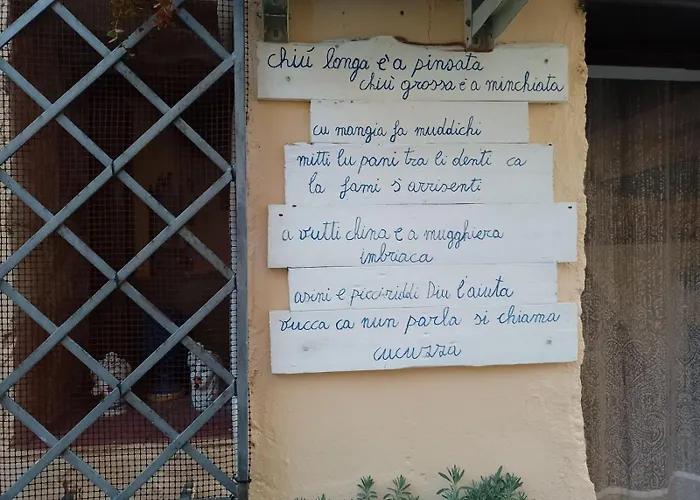 chiú longa é a pinsata
chiù grossa é a minchiata
cu mangia fa muddichi
mitti lu pani tra li denti ca
la fami s'arrisenti
a vutti china é a mugghiera
imbriaca
asini e picciriddi Diu l'aiuta
vucca ca nun parla si chiama
cucuzza